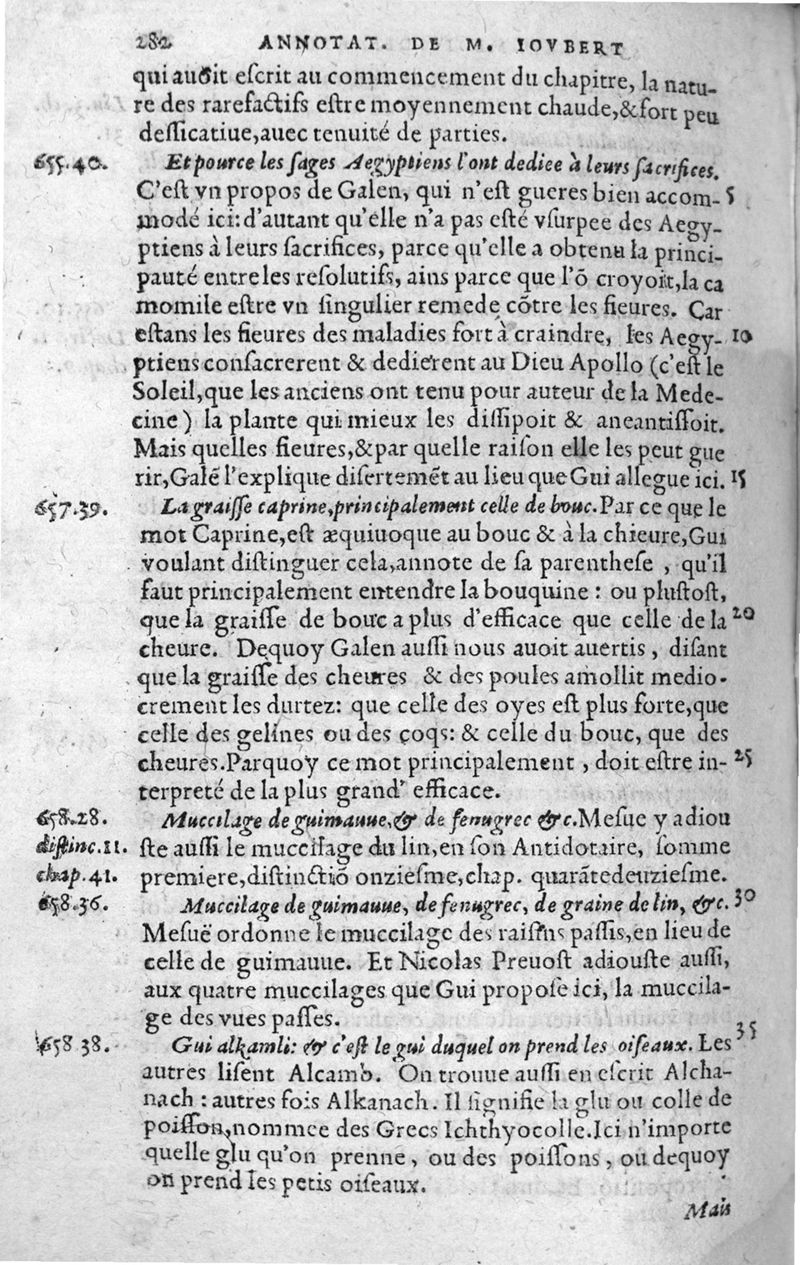 282 ANNOTAT. DE M. IOVBERT
qui auoit eſcrit au commencement du chapitre, la natu-
re des rarefactifs eſtre moyennement chaude,&fort peu
deſſicatiue,auec tenuité de parties.
655.40. Et pource les ſages Aegyptiens l'ont dediee à leurs ſacrifices.
C'eſt vn propos de Galen, qui n'eſt gueres bien accom- 5
modé ici: d'autant qu'elle n'a pas eſté vſurpee des Aegy-
ptiens à leurs ſacrifices, parce qu'elle a obtenu la princi-
pauté entre les reſolutifs, ains parce que l'õ croyoit,la ca
momile eſtre vn ſingulier remede cõtre les fieures. Car
eſtans les fieures des maladies fort à craindre, les Aegy- 10
ptiens conſacrerent & dedierent au Dieu Apollo (c'eſt le
Soleil,que les anciens ont tenu pour auteur de la Mede-
cine) la plante qui mieux les diſſipoit & aneantiſſoit.
Mais quelles fieures,&par quelle raiſon elle les peut gue
rir,Galẽ l'explique diſertemẽt au lieu que Gui allegue ici. 15
657.39. La graiſſe caprine,principalement celle de bouc. Par ce que le
mot Caprine,eſt æquiuoque au bouc & à la chieure,Gui
voulant diſtinguer cela,annote de ſa parentheſe , qu'il
faut principalement entendre la bouquine : ou pluſtoſt,
que la graiſſe de bouc a plus d'efficace que celle de la 20
cheure. Dequoy Galen auſſi nous auoit auertis , diſant
que la graiſſe des cheures & des poules amollit medio-
crement les durtez: que celle des oyes eſt plus forte,que
celle des gelines ou des coqs: & celle du bouc, que des
cheures. Parquoy ce mot principalement , doit eſtre in- 25
terpreté de la plus grand' efficace.
658.28. Muccilage de guimauue,& de fenugrec &c. Meſue y adiou
diſtinc.11. ſte auſſi le muccilage du lin,en ſon Antidotaire, ſomme
chap.41. premiere,diſtinctiõ onzieſme,chap. quarãtedeuzieſme.
658.36. Muccilage de guimauue, de fenugrec, de graine de lin, &c. 30
Meſuë ordonne le muccilage des raiſins paſſis,en lieu de
celle de guimauue. Et Nicolas Preuoſt adiouſte auſſi,
aux quatre muccilages que Gui propoſe ici, la muccila-
ge des vues paſſes.
658 38. Gui alkamli: & c'eſt le gui duquel on prend les oiſeaux. Les 35
autres liſent Alcamb. On trouue auſſi en eſcrit Alcha-
nach : autres fois Alkanach. Il ſignifie la glu ou colle de
poiſſon,nommee des Grecs Ichthyocolle. Ici n'importe
quelle glu qu'on prenne , ou des poiſſons , ou dequoy
on prend les petis oiſeaux.
Mais